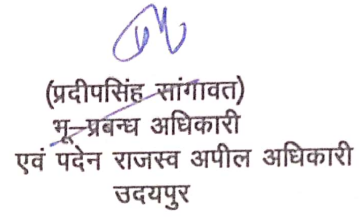 (प्रदीपसिंह सांगावत)
भू-प्रबन्ध अधिकारी
एवं पदेन राजस्व अपील अधिकारी
उदयपुर